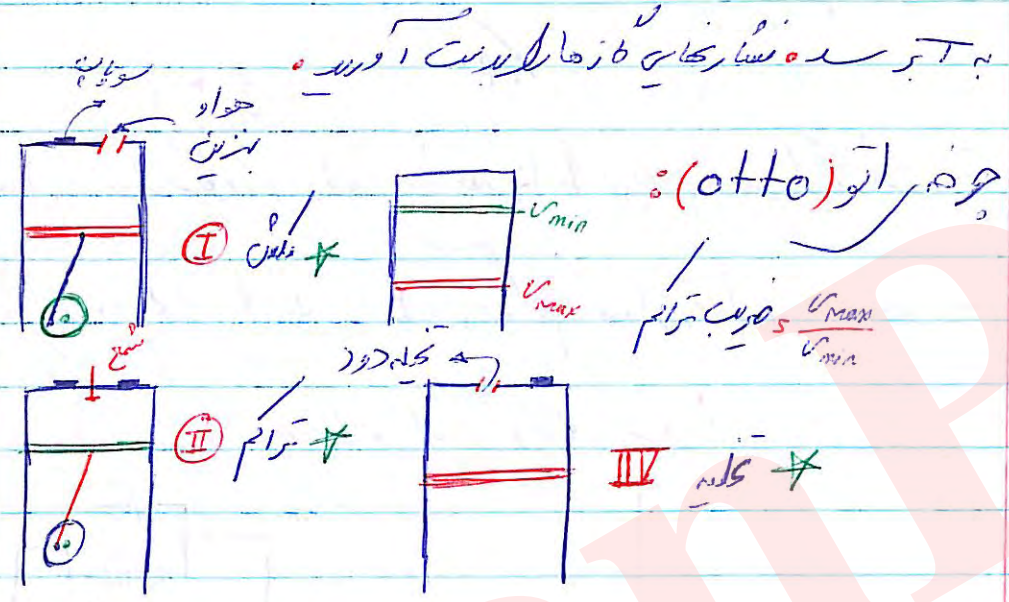 به آبر سد. فشار نهایی گازها را بدست آورید.
سوپاپ
هوا و
بنزین
چرخه اتو (otto):
I
مکش
Vmin
Vmax
ضریب تراکم = Vmax / Vmin
شمع
II
تراکم
تخلیه دود
IV
تخلیه